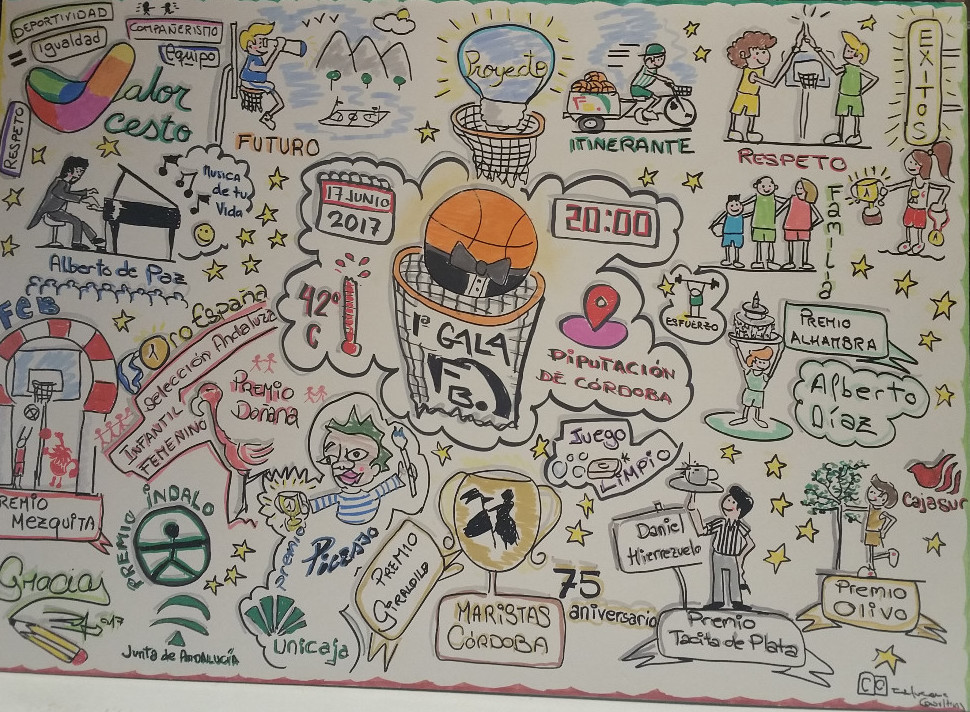 DEPORTIVIDAD
= Igualdad
COMPAÑERISMO
Equipo
RESPETO
Valor
cesto
FUTURO
Proyecto
ITINERANTE
RESPETO
EXITOS
Familia
Musica
de tu
Vida
Alberto de Paz
17 JUNIO
2017
20:00
42º
C
1ª GALA
F
B.
DIPUTACIÓN
DE CÓRDOBA
ESFUERZO
PREMIO
ALHAMBRA
Alberto
Díaz
FEB
Oro España
1
Selección Andaluza
INFANTIL
FEMENINO
PREMIO
Doñana
REMIO
MEZQUITA
PREMIO
INDALO
Premio
Picasso
PREMIO
GIRALDILLO
Juego
LIMPIO
MARISTAS
CÓRDOBA
75
aniversario
Daniel
Hierrezuelo
Premio
Tacita de Plata
Premio
Olivo
Cajasur
Gracias
Junta de ANDALUCÍA
Unicaja
CC